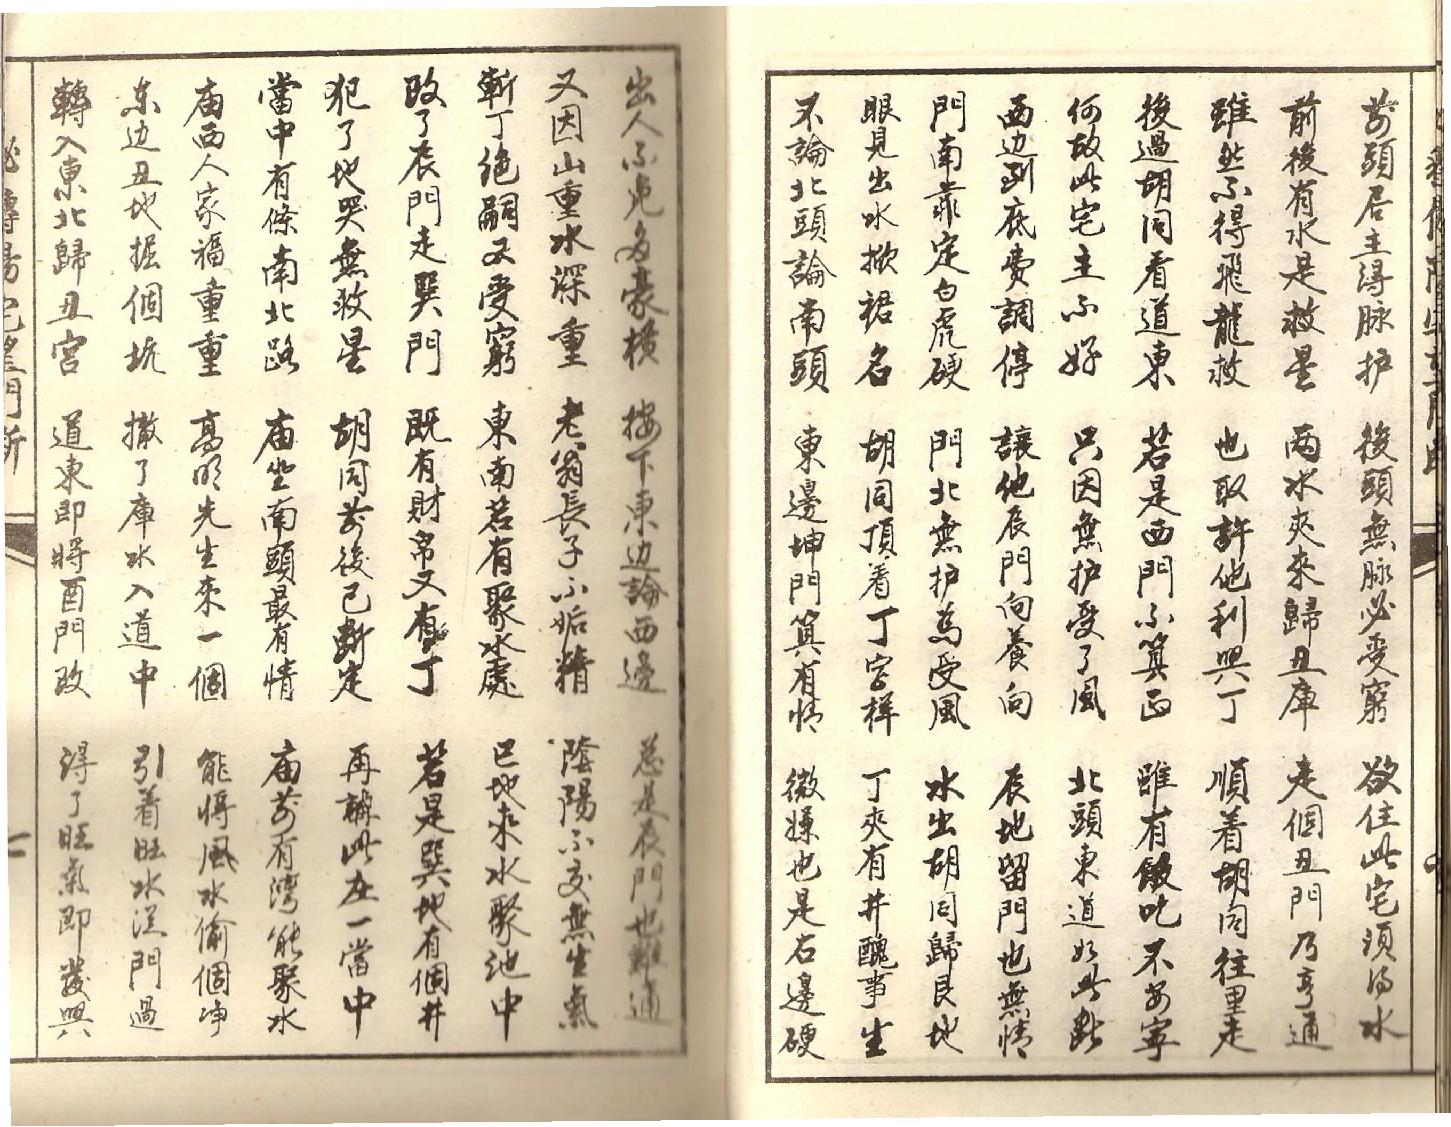 前頭居主得脉护 後頭無脉必受窮 欲住此宅須得水
前後有水是救星 两水夾來歸丑庫 走個丑門乃亨通
雖然不得飛龍救 也取許他利與丁 順着胡同往里走
後過胡同看道東 若是西門不算正 雖有飯吃不安寧
何故此宅主不好 只因無护受了風 北頭東道如此斷
西边到底費調停 讓他辰門向養向 辰地留門也無情
門南靠定白虎硬 門北無护為受風 水出胡同歸艮地
眼見出水掀裙名 胡同頂着丁字樣 丁夾有井醜事生
不論北頭論南頭 東邊坤門算有情 微嫌也是右邊硬
出人不免多豪横 按下東边論西邊 总是辰門也難通
又因山重水深重 老翁長子不妬精 陰陽不交無生氣
斬丁絶嗣又受窮 東南若有聚水處 巳地來水聚池中
改了辰門走巽門 既有財帛又有丁 若是巽地有個井
犯了地哭無救星 胡同前後已斷定 再講此庄一當中
當中有條南北路 庙坐南頭最有情 庙前有湾能聚水
庙西人家福重重 高明先生來一個 能将風水偷個净
东边丑地掘個坑 撤了庫水入道中 引着旺水從門過
轉入東北歸丑宫 道東即将酉門改 得了旺氣即發興